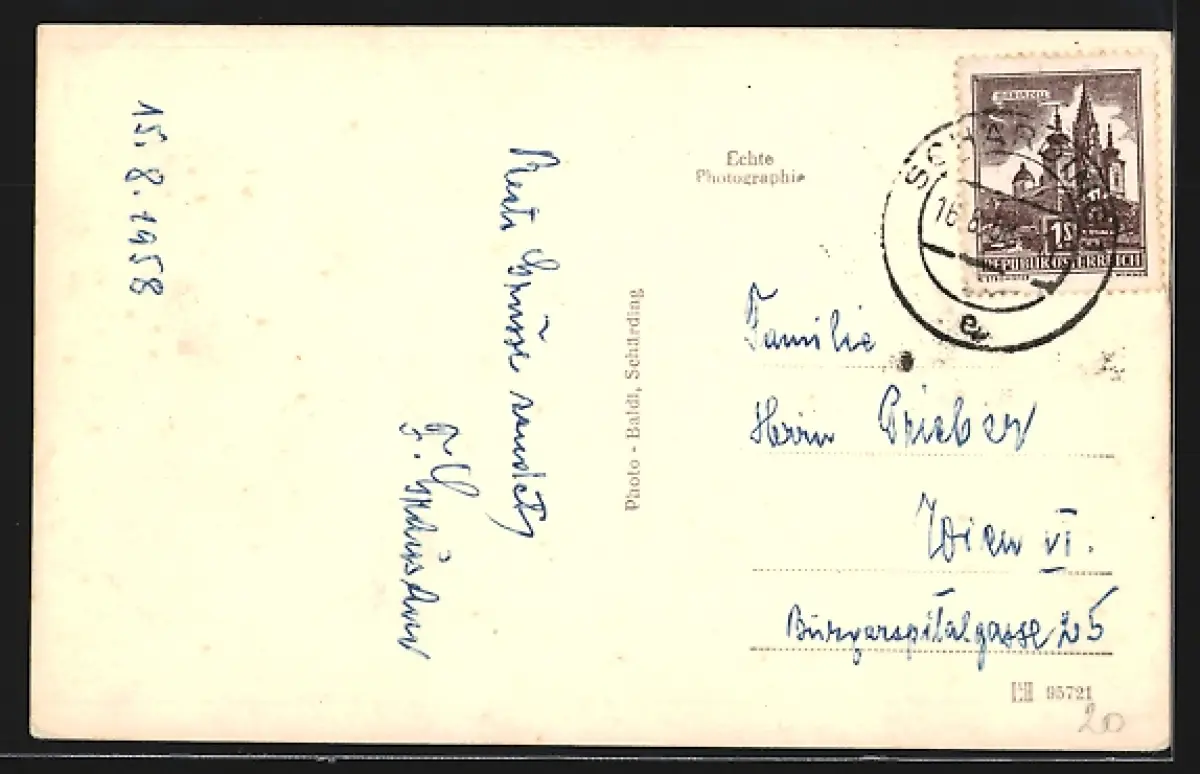 15. 8. 1958
Beste Grüsse sendet
F.
Echte
Photographie
Photo - Baldi, Schärding
MARIAZELL
1S
REPUBLIK ÖSTERREICH
SCHÄRDING
16. 8.
Familie
Herrn Prieber
Wien VI.
Bürgerspitalgasse 25
95721
20